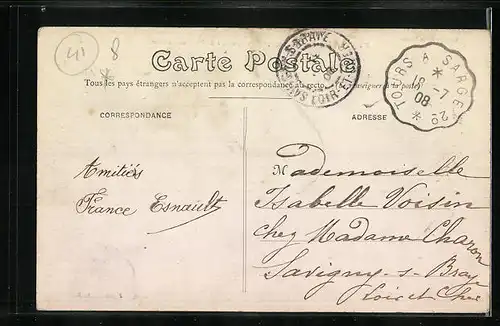 41 8
Carte Postale
Tous les pays étrangers n'acceptent pas la correspondance au recto
TOURS A SARGÉ 2º
16 -7
08
LOIR-&-CHER
CORRESPONDANCE
ADRESSE
Amitiés
France Esnault
Mademoiselle
Isabelle Voisin
chez Madame Charon
Savigny-s-Braye
Loir et Cher